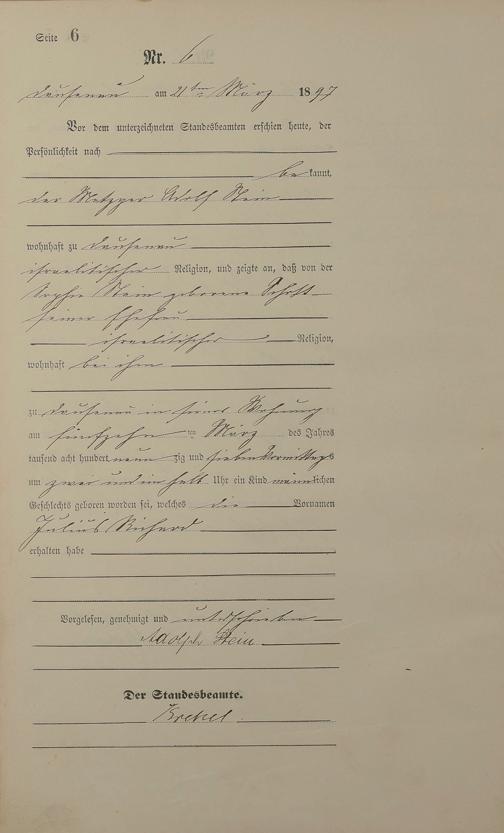 Seite 6
Nr. 6
Dausenau am 21ten März 1897
Vor dem unterzeichneten Standesbeamten erschien heute, der
Persönlichkeit nach
be kannt,
der Metzger Adolf Stein
wohnhaft zu Dausenau
israelitischer Religion, und zeigte an, daß von der
Sophie Stein geborene
seiner Ehefrau
israelitischer Religion,
wohnhaft bei ihm
zu Dausenau in seiner Wohnung
am fünfzehn ten März des Jahres
tausend acht hundert neun zig und sieben Vormittags
um zwei und ein halb Uhr ein Kind männlichen
Geschlechts geboren worden sei, welches die Vornamen
Julius Richard
erhalten habe
Vorgelesen, genehmigt und unterschrieben
Adolph Stein
Der Standesbeamte.
Krekel